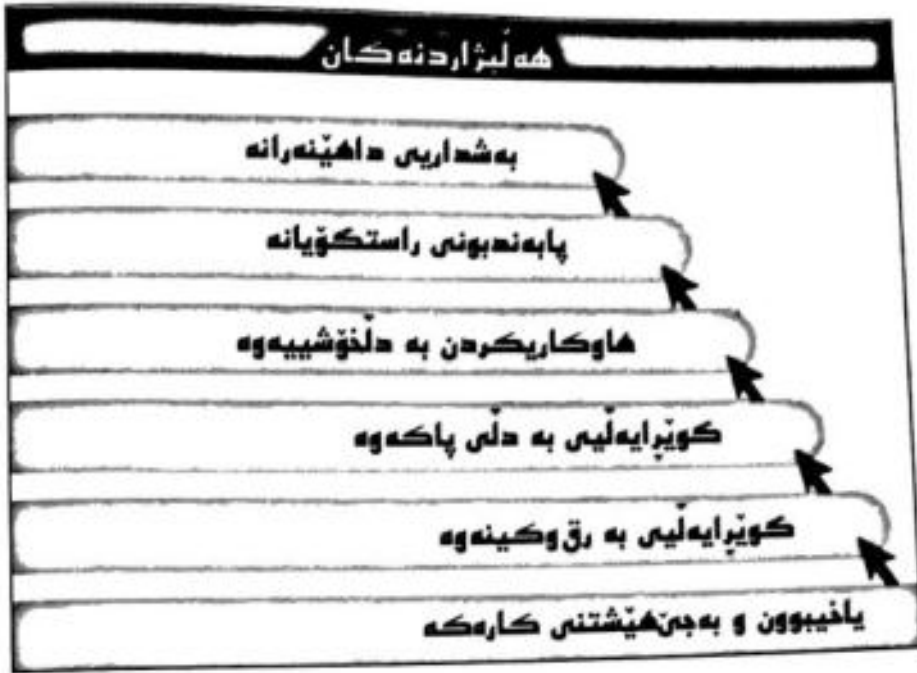 هەڵبژاردنەکان
بەشداریی داهێنەرانە
پابەندبونی راستگۆیانە
هاوکاریکردن بە دڵخۆشییەوە
گوێڕایەڵیی بە دڵی پاکەوە
گوێڕایەڵیی بە رق وکینەوە
یاخیبوون و بەجێهێشتنی کارەکە